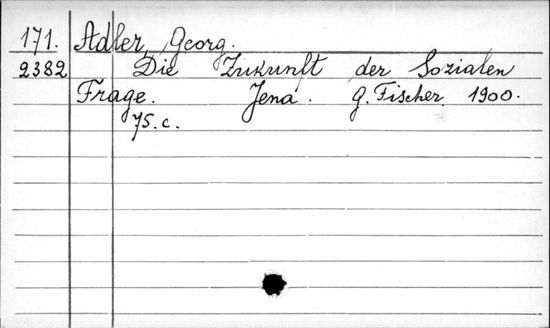 171. Adler, Georg.
2382 Die Zukunft der Sozialen
Frage. Jena. G. Fischer. 1900.
75. c.